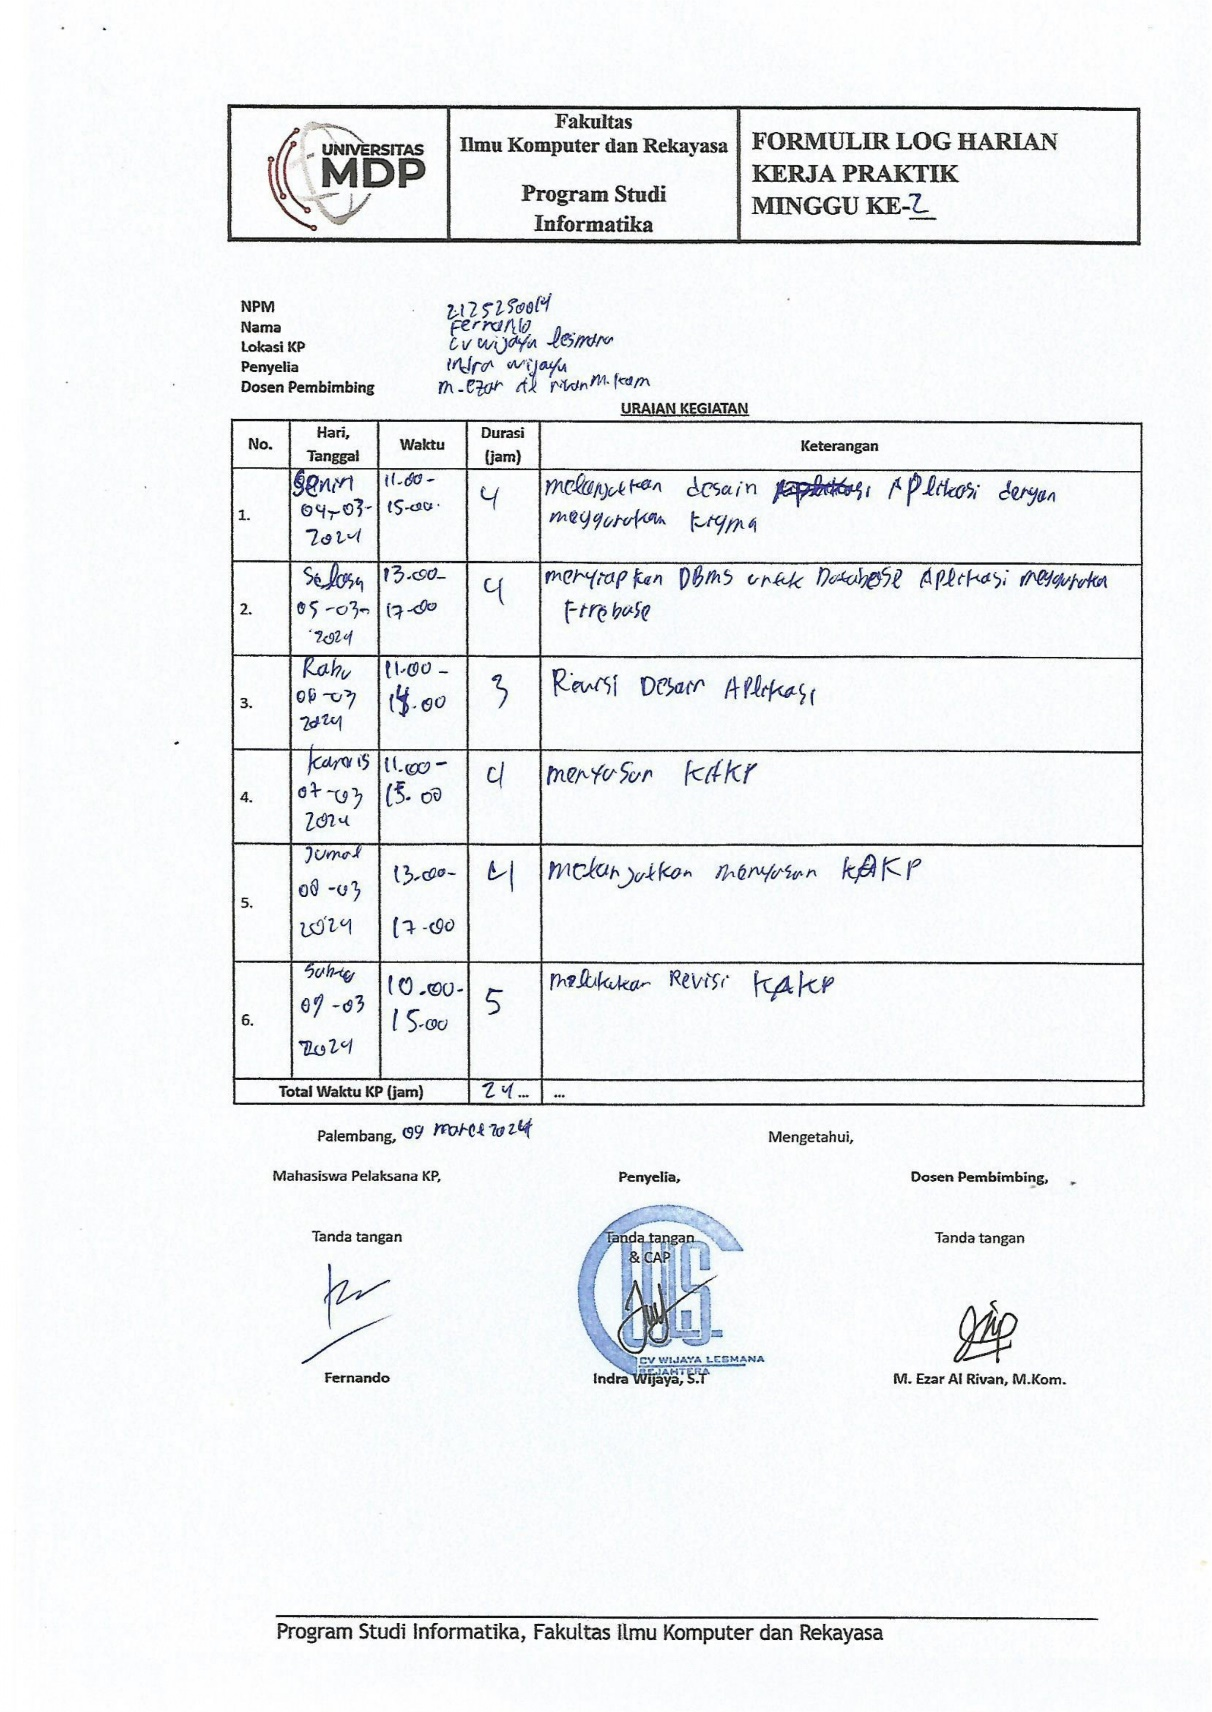 UNIVERSITAS
MDP
Fakultas
Ilmu Komputer dan Rekayasa
Program Studi
Informatika
FORMULIR LOG HARIAN
KERJA PRAKTIK
MINGGU KE-2
NPM 2125250014
Nama Fernando
Lokasi KP CV wijaya lesmana
Penyelia indra wijaya
Dosen Pembimbing m. Ezar Al rivan M.kom
URAIAN KEGIATAN
No. Hari, Tanggal Waktu Durasi (jam) Keterangan
1. Senin 04-03-2024 11.00-15.00. 4 melanjutkan desain Aplikasi dengan
menggunakan Figma
2. Selasa 05-03-2024 13.00-17-00 4 menyiapkan DBMS untuk Database Aplikasi menggunakan
Firebase
3. Rabu 06-03 2024 11.00-14.00 3 Revisi Desain Aplikasi
4. kamis 07-03 2024 11.00-15.00 4 menyusun KAKP
5. Jumat 08-03 2024 13.00-17-00 4 melanjutkan menyusun KAKP
6. Sabtu 09-03 2024 10.00-15.00 5 melakukan Revisi KAKP
Total Waktu KP (jam) 24... ...
Palembang, 09 maret 2024 Mengetahui,
Mahasiswa Pelaksana KP, Penyelia, Dosen Pembimbing,
Tanda tangan Tanda tangan Tanda tangan
& CAP
CV WIJAYA LESMANA
SEJAHTERA
Fernando Indra Wijaya, S.T M. Ezar Al Rivan, M.Kom.
Program Studi Informatika, Fakultas Ilmu Komputer dan Rekayasa